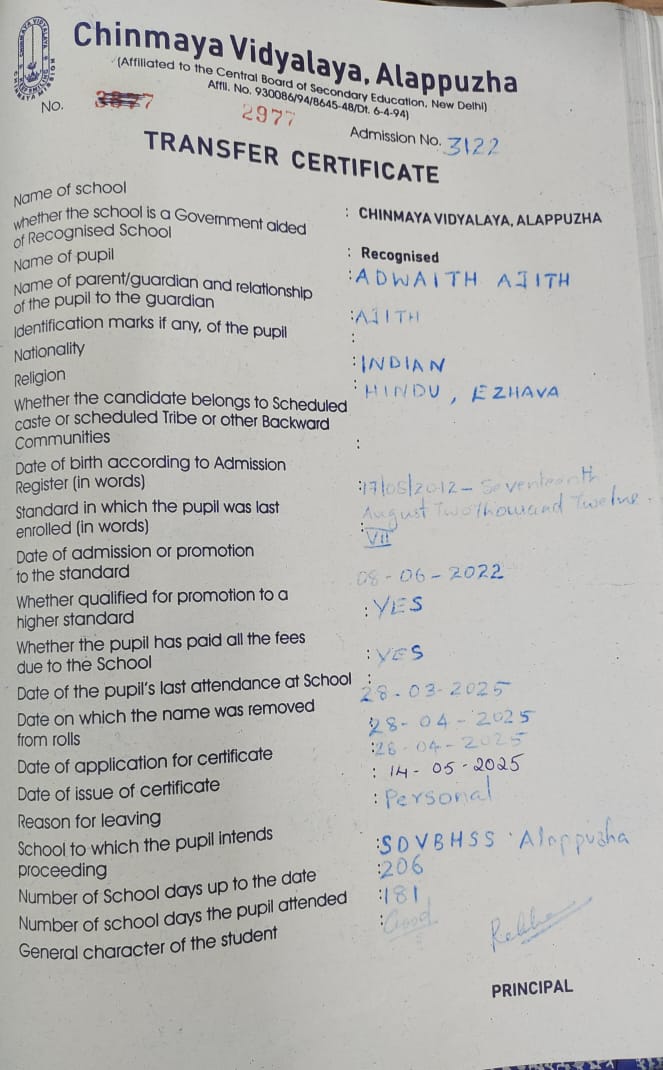 Chinmaya Vidyalaya, Alappuzha
(Affiliated to the Central Board of Secondary Education, New Delhi)
Affil. No. 930086/94/8645-48/Dt. 6-4-94)
No. 3877
2977
Admission No. 3122
TRANSFER CERTIFICATE
Name of school : CHINMAYA VIDYALAYA, ALAPPUZHA
whether the school is a Government aided
of Recognised School : Recognised
Name of pupil : ADWAITH AJITH
Name of parent/guardian and relationship
of the pupil to the guardian : AJITH
Identification marks if any, of the pupil :
Nationality : INDIAN
Religion : HINDU, EZHAVA
Whether the candidate belongs to Scheduled
caste or scheduled Tribe or other Backward
Communities :
Date of birth according to Admission
Register (in words) : 17/05/2012 - Seventeenth
August Two Thousand Twelve.
Standard in which the pupil was last
enrolled (in words) : VII
Date of admission or promotion
to the standard 08-06-2022
Whether qualified for promotion to a
higher standard : YES
Whether the pupil has paid all the fees
due to the School : YES
Date of the pupil's last attendance at School : 28-03-2025
Date on which the name was removed
from rolls : 28-04-2025
Date of application for certificate : 28-04-2025
Date of issue of certificate : 14-05-2025
Reason for leaving : Personal
School to which the pupil intends
proceeding : SDVBHSS Alappuzha
Number of School days up to the date : 206
Number of school days the pupil attended : 181
General character of the student : Good
PRINCIPAL